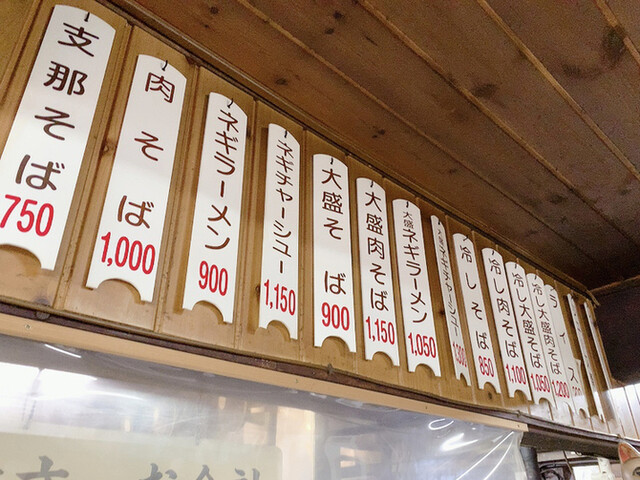 支那そば
750
肉そば
1,000
ネギラーメン
900
ネギチャーシュー
1,150
大盛そば
900
大盛肉そば
1,150
大盛ネギラーメン
1,050
大盛ネギチャーシュー
1,300
冷しそば
850
冷し肉そば
1,100
冷し大盛そば
1,050
冷し大盛肉そば
1,200
ライス